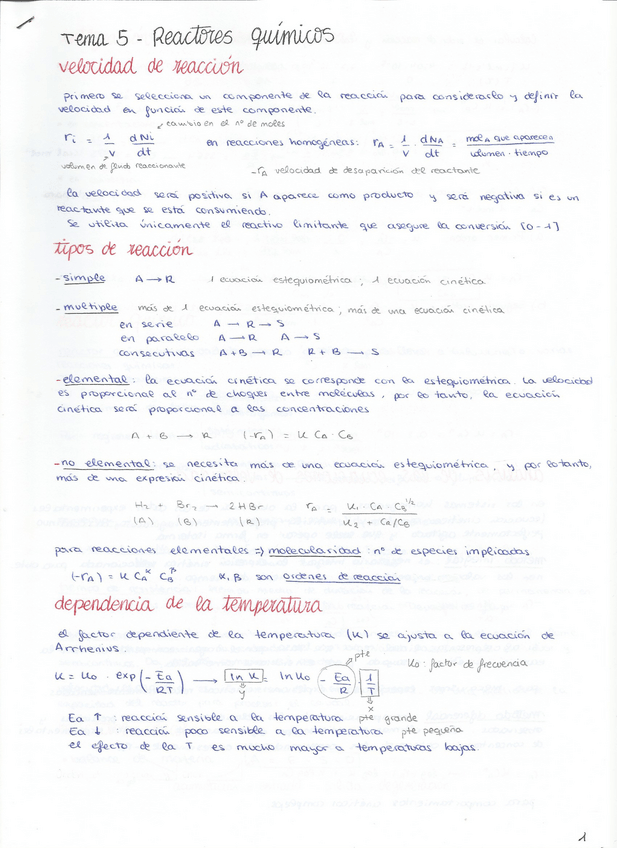 Tema 5 - Reactores químicos
velocidad de reacción
primero se selecciona un componente de la reacción para considerarlo y definir la
velocidad en función de este componente.
cambio en el nº de moles
ri = 1/V dNi/dt   en reacciones homogéneas: rA = 1/V · dNA/dt = mol A que aparecen / volumen · tiempo
volumen de fluido reaccionante   -rA velocidad de desaparición del reactante
la velocidad será positiva si A aparece como producto y será negativa si es un
reactante que se está consumiendo.
se utiliza únicamente el reactivo limitante que asegure la conversión [0-1]
tipos de reacción
- simple   A → R   1 ecuación estequiométrica ; 1 ecuación cinética
- multiple   más de 1 ecuación estequiométrica ; más de una ecuación cinética
en serie   A → R → S
en paralelo   A → R   A → S
consecutivas   A + B → R   R + B → S
- elemental : la ecuación cinética se corresponde con la estequiométrica. La velocidad
es proporcional al nº de choques entre moléculas, por lo tanto, la ecuación
cinética será proporcional a las concentraciones
A + B → R   (-rA) = K CA · CB
- no elemental : se necesita más de una ecuación estequiométrica, y por lo tanto,
más de una expresión cinética.
H2 + Br2 → 2HBr   rA = K1 · CA · CB^1/2 / K2 + CR/CB
(A)   (B)   (R)
para reacciones elementales => molecularidad : nº de especies implicadas
(-rA) = K CA^α CB^β   α, β son ordenes de reacción
dependencia de la temperatura
el factor dependiente de la temperatura (K) se ajusta a la ecuación de
Arrhenius.   pte   K0 : factor de frecuencia
K = K0 · exp(- Ea/RT) → ln K = ln K0 - Ea/R · 1/T
y   x
Ea ↑ : reacción sensible a la temperatura   pte grande
Ea ↓ : reacción poco sensible a la temperatura   pte pequeña
el efecto de la T es mucho mayor a temperaturas bajas.
1